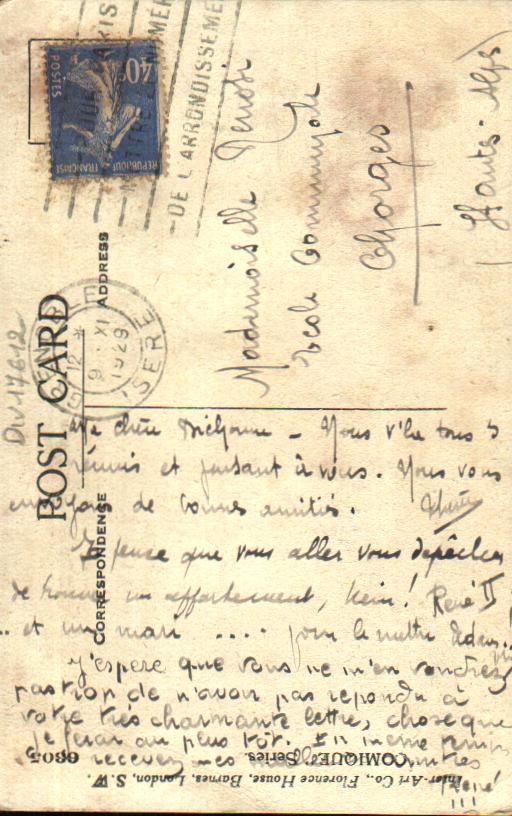 POST CARD
CORRESPONDENCE
ADDRESS
40c
POSTES
REPUBLIQUE FRANÇAISE
DE L'ARRONDISSEME
GRENOBLE
12
9 XI
1929
ISERE
Div 17612
Mademoiselle
Ecole Communale
Chorges
Hautes-Alpes
chère Michonne - Nous v'la tous 3
réunis et pensant à vous. Nous vous
envoyons de bonnes amitiés.
Je pense que vous allez vous dépêcher
de trouver un appartement, hein! René II
et un mari .... pour le mettre dedans
J'espère que vous ne m'en voudrez
pas trop de n'avoir pas répondu à
votre très charmante lettre, chose que
je ferai au plus tôt. En même temps
recevez mes
René
!!!
6805
"COMIQUE" Series.
Inter-Art Co., Florence House, Barnes, London, S.W.